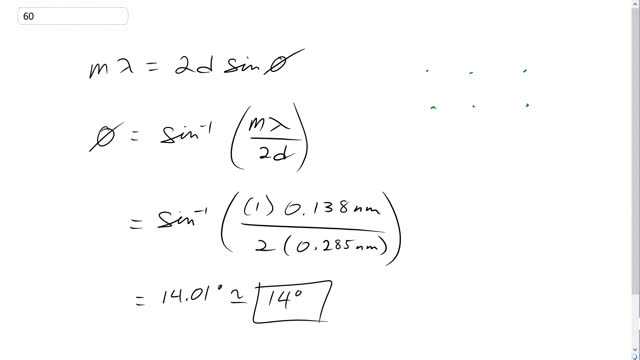 60
mλ = 2d sin ∅
∅ = sin⁻¹ (mλ / 2d)
= sin⁻¹ ((1) 0.138 nm / 2 (0.285 nm))
= 14.01° ≃ 14°